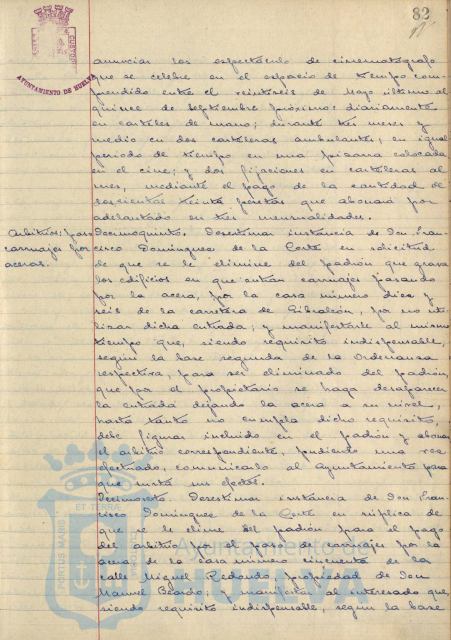 82
AYUNTAMIENTO DE HUELVA
anunciar los espectáculo de cinematógrafo
que se celebre en el espacio de tiempo com-
prendido entre el veintiseis de Mayo último al
quince de Septiembre próximo: diariamente
en carteles de mano; durante tres meses y
medio en dos carteleras ambulantes; en igual
periodo de tiempo en una pizarra colocada
en el cine; y dos fijaciones en carteleras al
mes, mediante el pago de la cantidad de
seiscientas treinta pesetas que abonará por
adelantado en tres mensualidades.
Arbitrios: paso
carruajes por
aceras.
Decimoquinto. Desestimar instancia de Don Fran-
cisco Dominguez de la Corte en solicitud
de que se le elimine del padrón que grava
los edificios en que entran carruajes pasando
por la acera, por la casa número diez y
seis de la carretera de Gibraleón, por no uti-
lizar dicha entrada; y manifestarle al mismo
tiempo que, siendo requisito indispensable,
según la base segunda de la Ordenanza
respectiva, para ser eliminado del padrón,
que por el propietario se haga desaparecer
la entrada dejando la acera a su nivel,
hasta tanto no cumpla dicho requisito,
debe figurar incluido en el padrón y abonar
el arbitrio correspondiente, pudiendo una vez
efectuado, comunicarlo al Ayuntamiento para
que surta sus efectos.
Decimosexto. Desestimar instancia de Don Fran-
cisco Dominguez de la Corte en súplica de
que se le elimine del padrón para el pago
del arbitrio por el paso de carruajes por la
acera de la casa número cincuenta de la
calle Miguel Redondo, propiedad de Don
Manuel; y manifestar al interesado que,
siendo requisito indispensable, según la base
PORTUS MARIS
ET TERRÆ
CUSTODIA
Ayuntamiento de
HUELVA